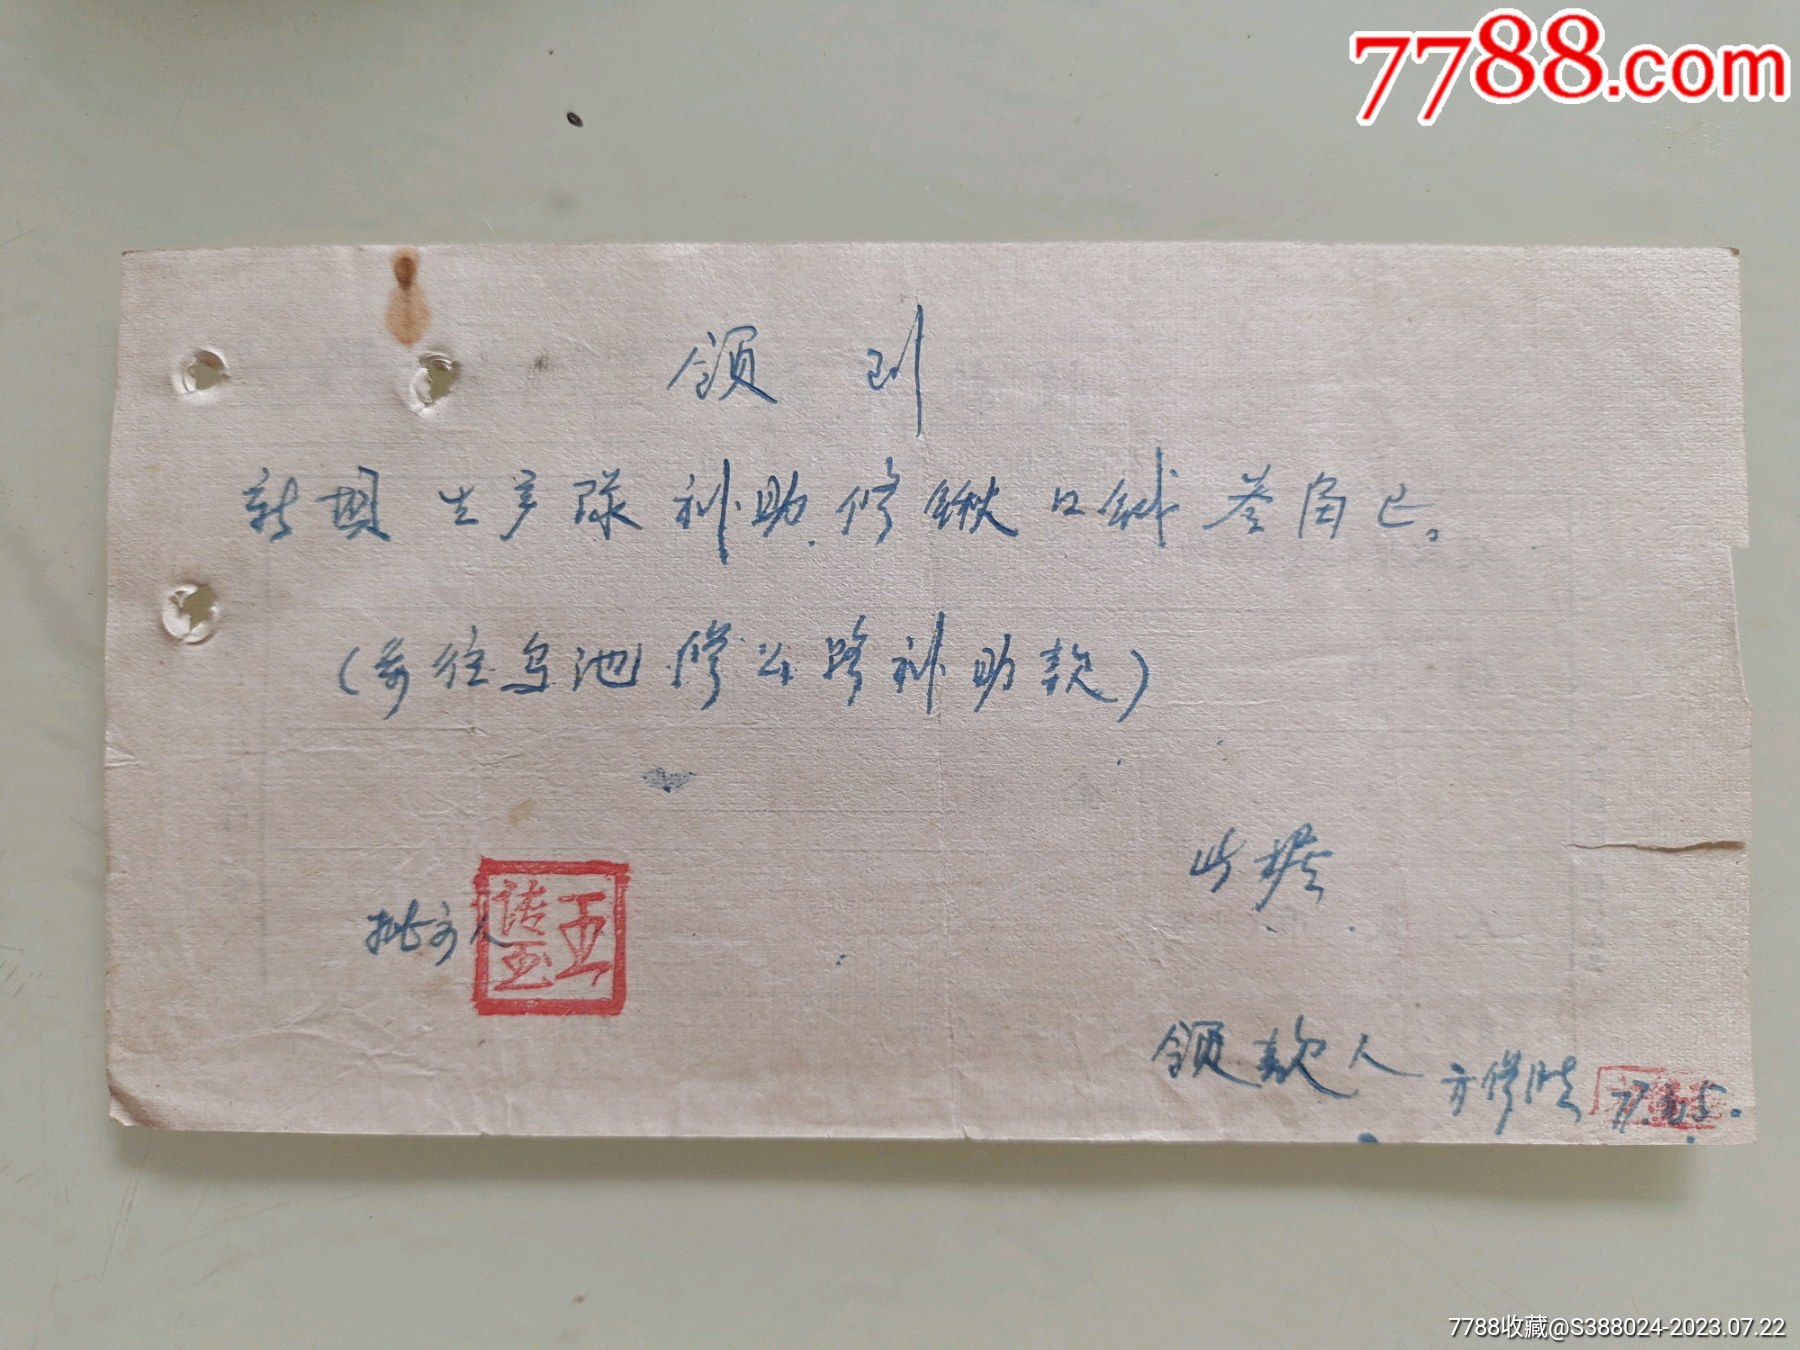 7788.com
领到
新埧生产队补助修锹口钱叁角正。
(系往乌池修公路补助款)
此据
批示人
王
领款人 方修胜 77.5.
7788收藏@S388024-2023.07.22